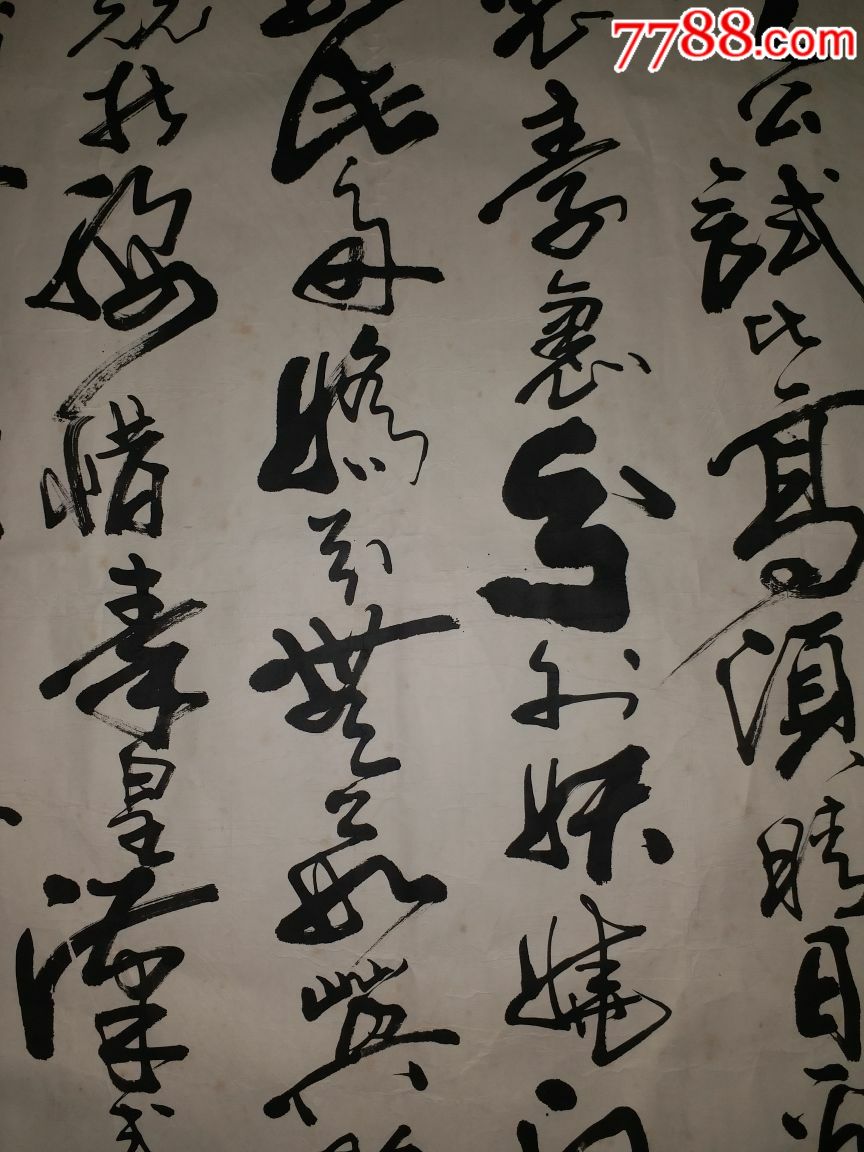 7788.com
公試比高須晴日
裝素裹分外妖嬈
此多嬌引無數英
競折腰惜秦皇漢武